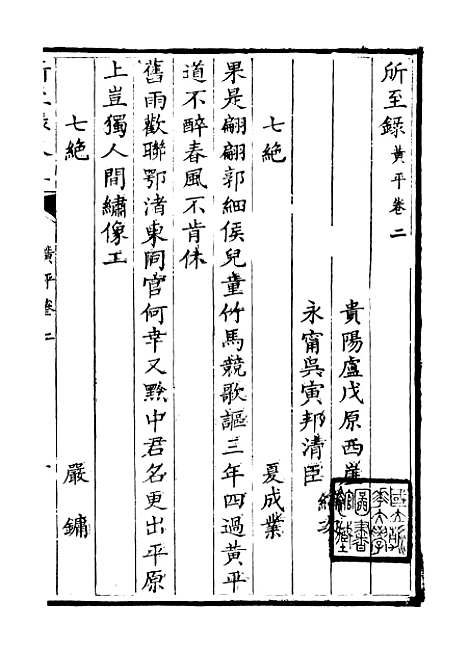 所至錄 黃平卷二
貴陽盧戊原西崖
永甯吳寅邦清臣 編次
七絶 夏成業
果是翩翩郭細侯兒童竹馬競歌謳三年四過黃平
道不醉春風不肯休
舊雨歡聯鄂渚東同官何幸又黔中君名更出平原
上豈獨人間繡像工
七絶 嚴鏞
黃平卷二